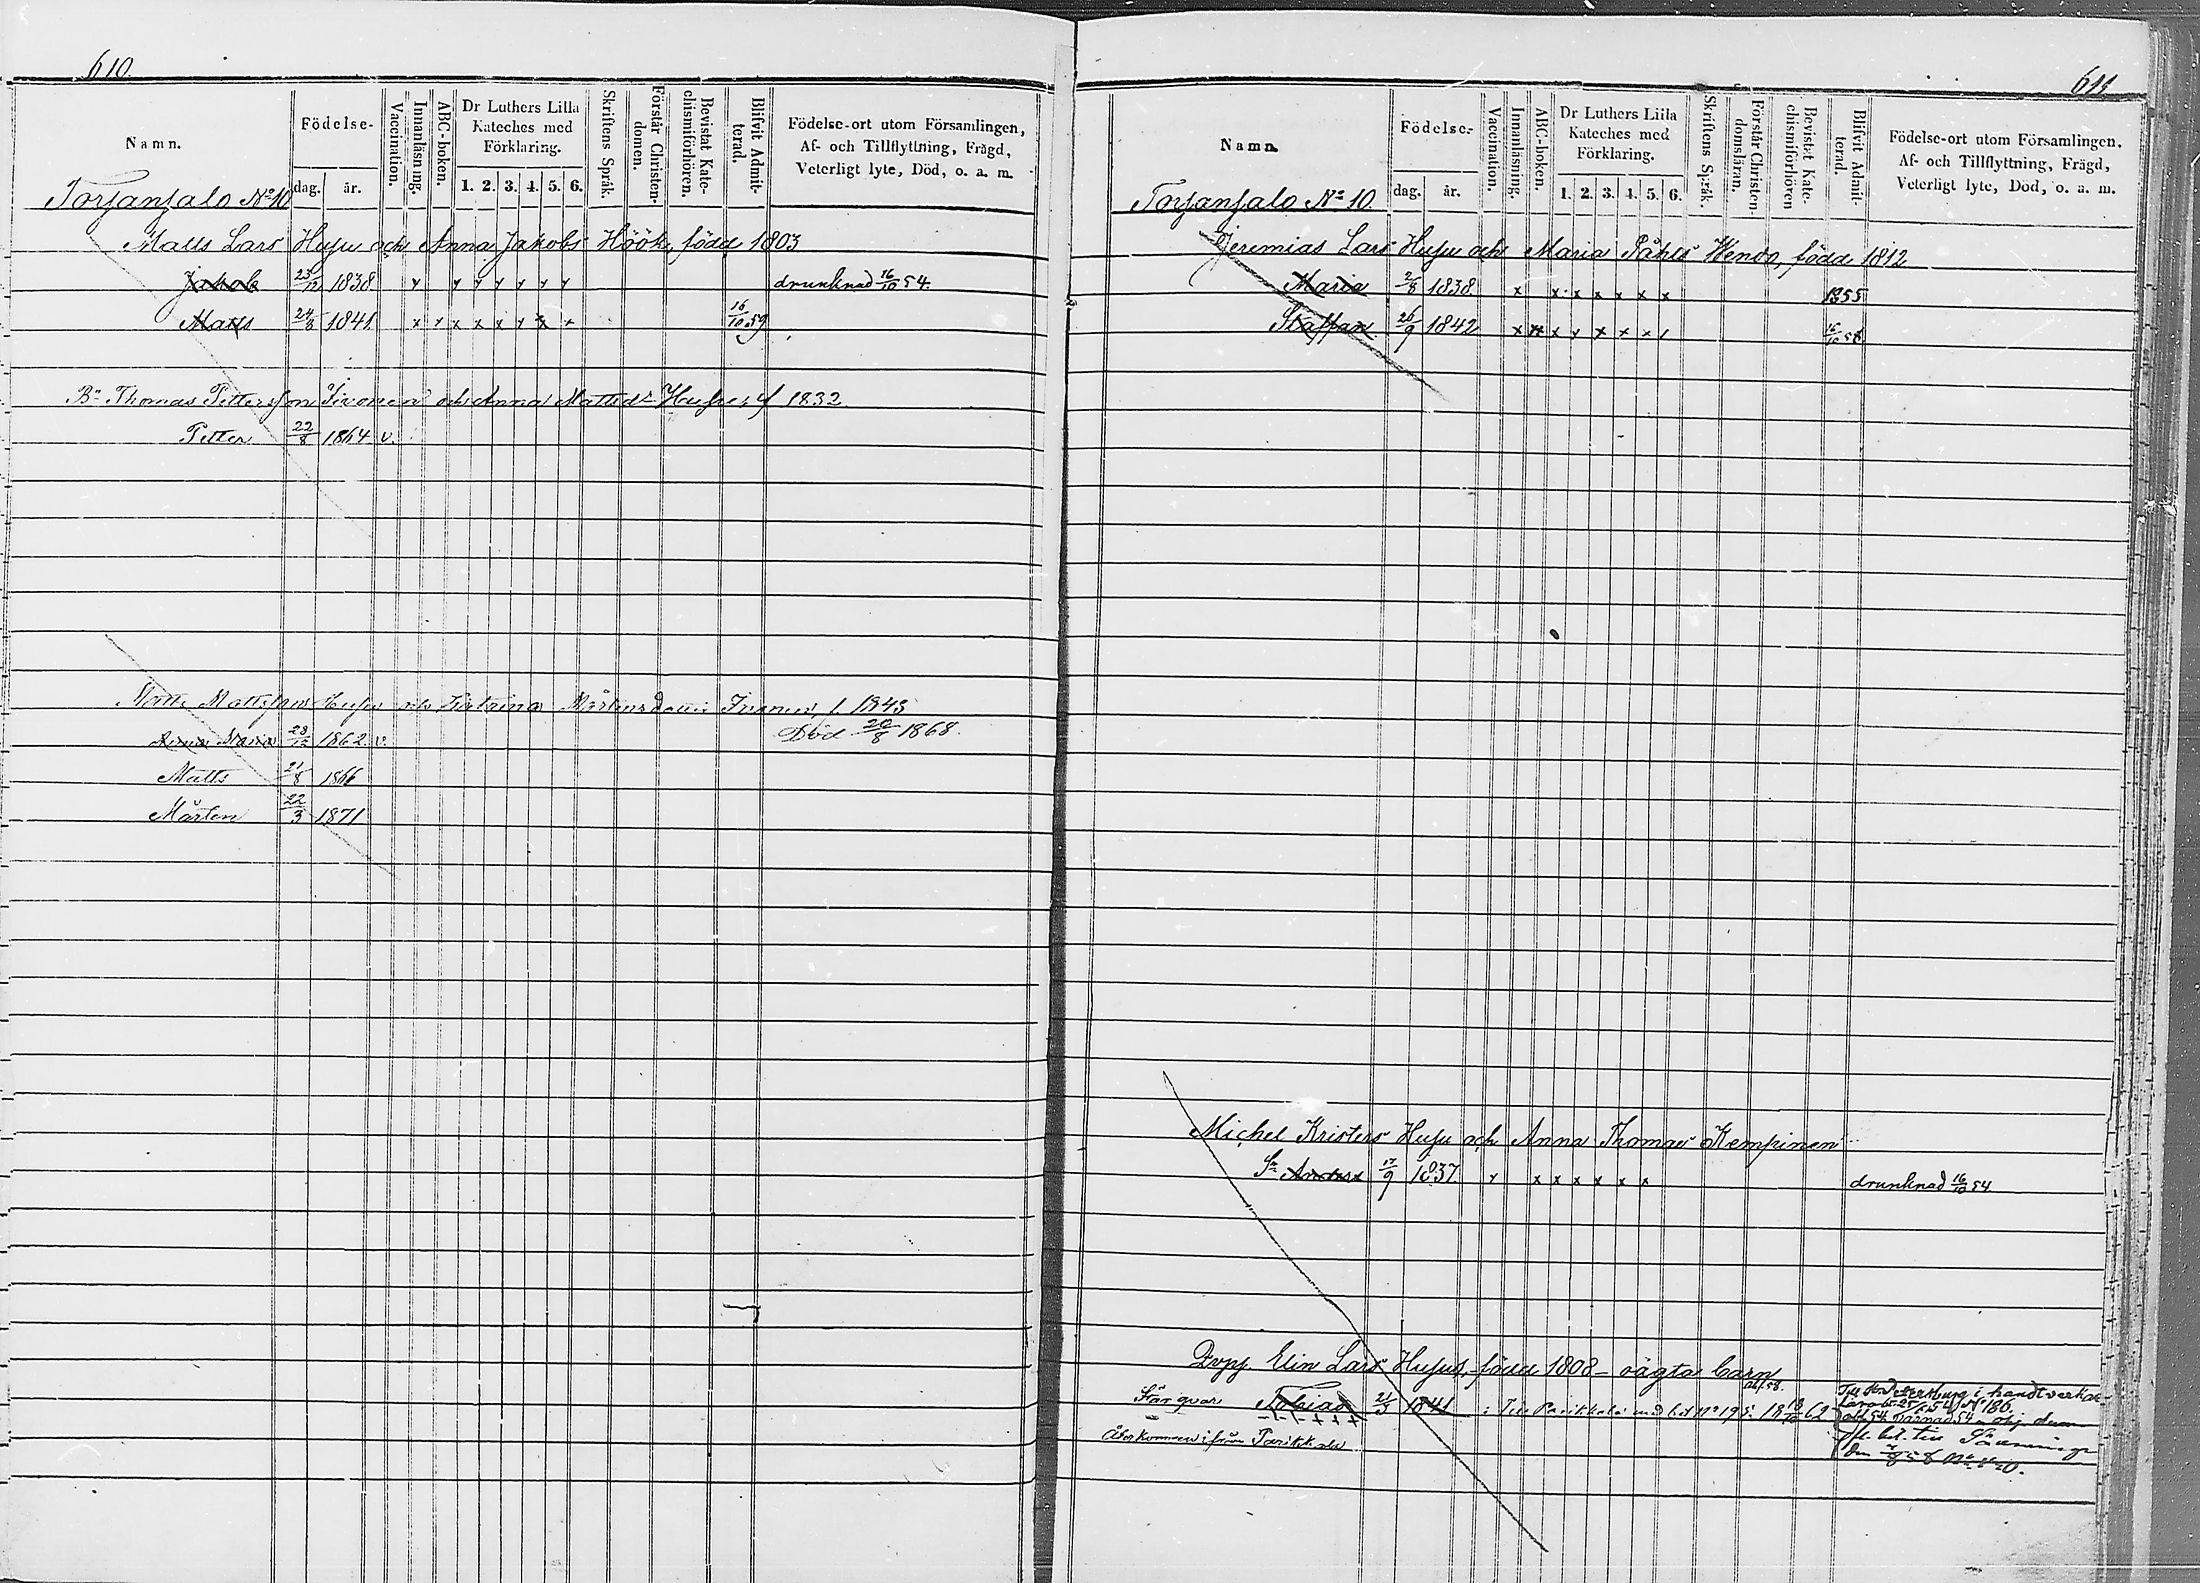 610.
Namn.
Födelse-
dag. år.
Vaccination.
Innanläsning.
ABC-boken.
Dr Luthers Lilla Kateches med Förklaring.
1. 2. 3. 4. 5. 6.
Skriftens Språk.
Förstår Christen-domen.
Bevistat Kate-chismiförhören.
Blifvit Admit-terad.
Födelse-ort utom Församlingen,
Af- och Tillflyttning, Frägd,
Veterligt lyte, Död, o. a. m.
Torsansalo No 10
Matts Lars Husu och Anna Jakobs Höök, född 1803
Jakob 23/12 1838 x x x x x x x drunknad 16/10 54.
Matts 24/8 1841 x x x x x x x x 16/10 59
Bn Thomas Pettersson Sivonen och Anna Mattsdr Husu f 1832
Petter 22/8 1864 v.
Matts Mattsson Husu och Katrina Mårtensdotter Ivonen f. 1843
Anna Maria 28/12 1862 v. Död 20/8 1868.
Matts 21/8 1866
Mårten 22/3 1871
611
Namn.
Födelse-
dag. år.
Vaccination.
Innanläsning.
ABC-boken.
Dr Luthers Lilla Kateches med Förklaring.
1. 2. 3. 4. 5. 6.
Skriftens Språk.
Förstår Christen-domsläran.
Bevistat Kate-chismiförhören
Blifvit Admit-terad.
Födelse-ort utom Församlingen.
Af- och Tillflyttning, Frägd,
Veterligt lyte, Död, o. a. m.
Torsansalo No 10.
Jeremias Lars Husu och Maria Påhls Wento, född 1812
Maria 2/8 1838 x x x x x x x 1855
Staffan 26/9 1842 x x x x x x x 16/10 58
Michel Kristers Husu och Anna Thomas Kempinen
Sn Anders 17/9 1837 x x x x x x x drunknad 16/10 54
Elin Lars Husus, född 1808 – oägta barn
Står qvar Tobias 21/3 1841 : Till Parikkala med bet No 195: 18 18/10 62
Återkommen ifrån Parikkala